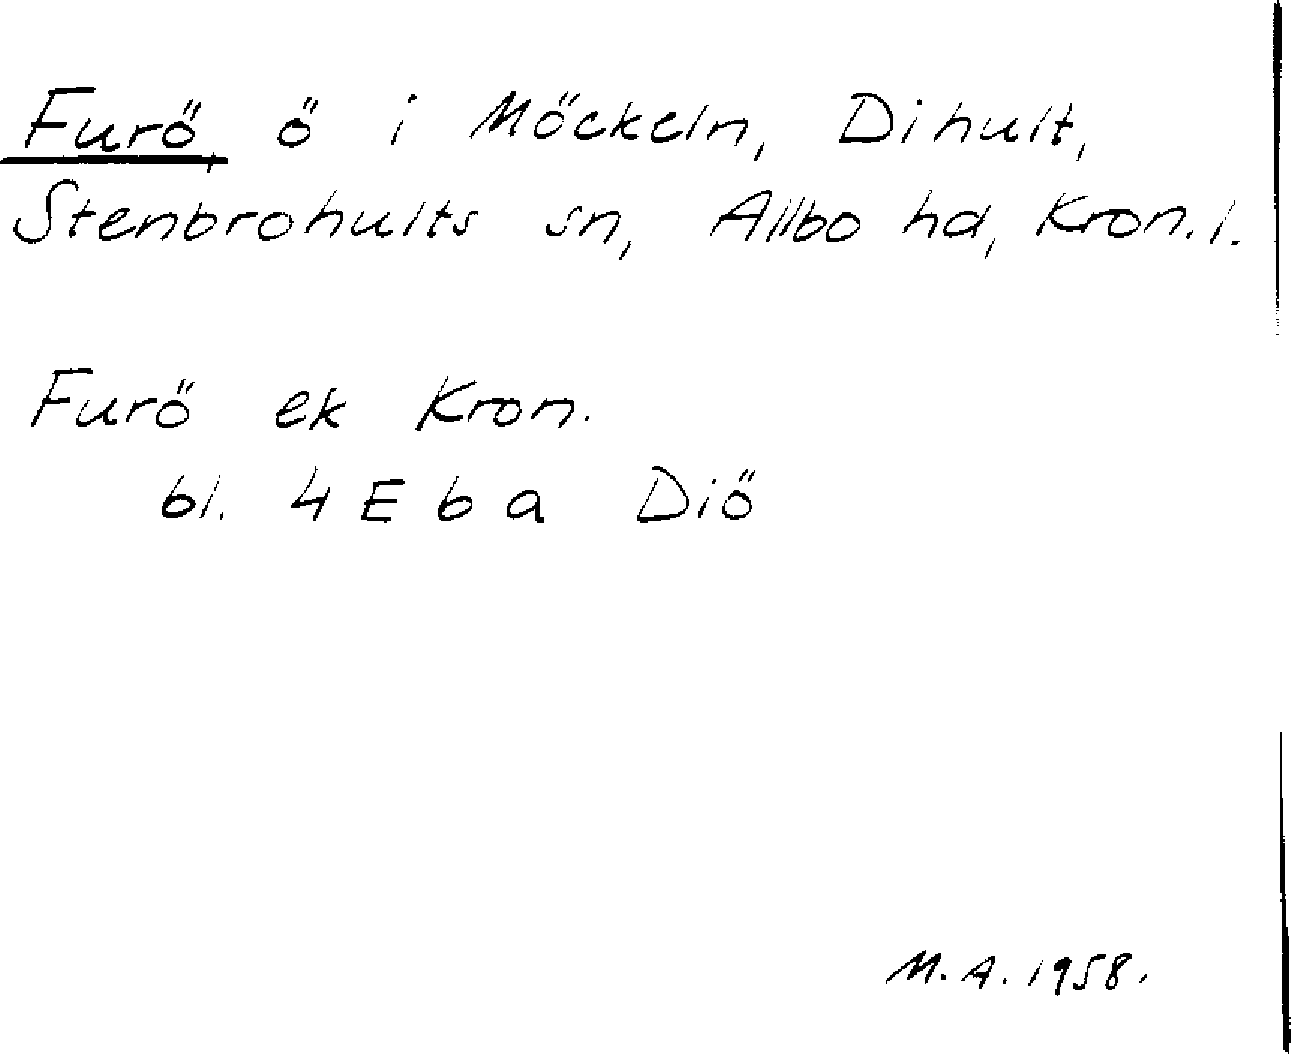 Furö, ö i Möckeln, Dihult,
Stenbrohults sn, Allbo hd, Kron. l.
Furö ek Kron.
bl. 4 E b a Diö
M. A. 1958.